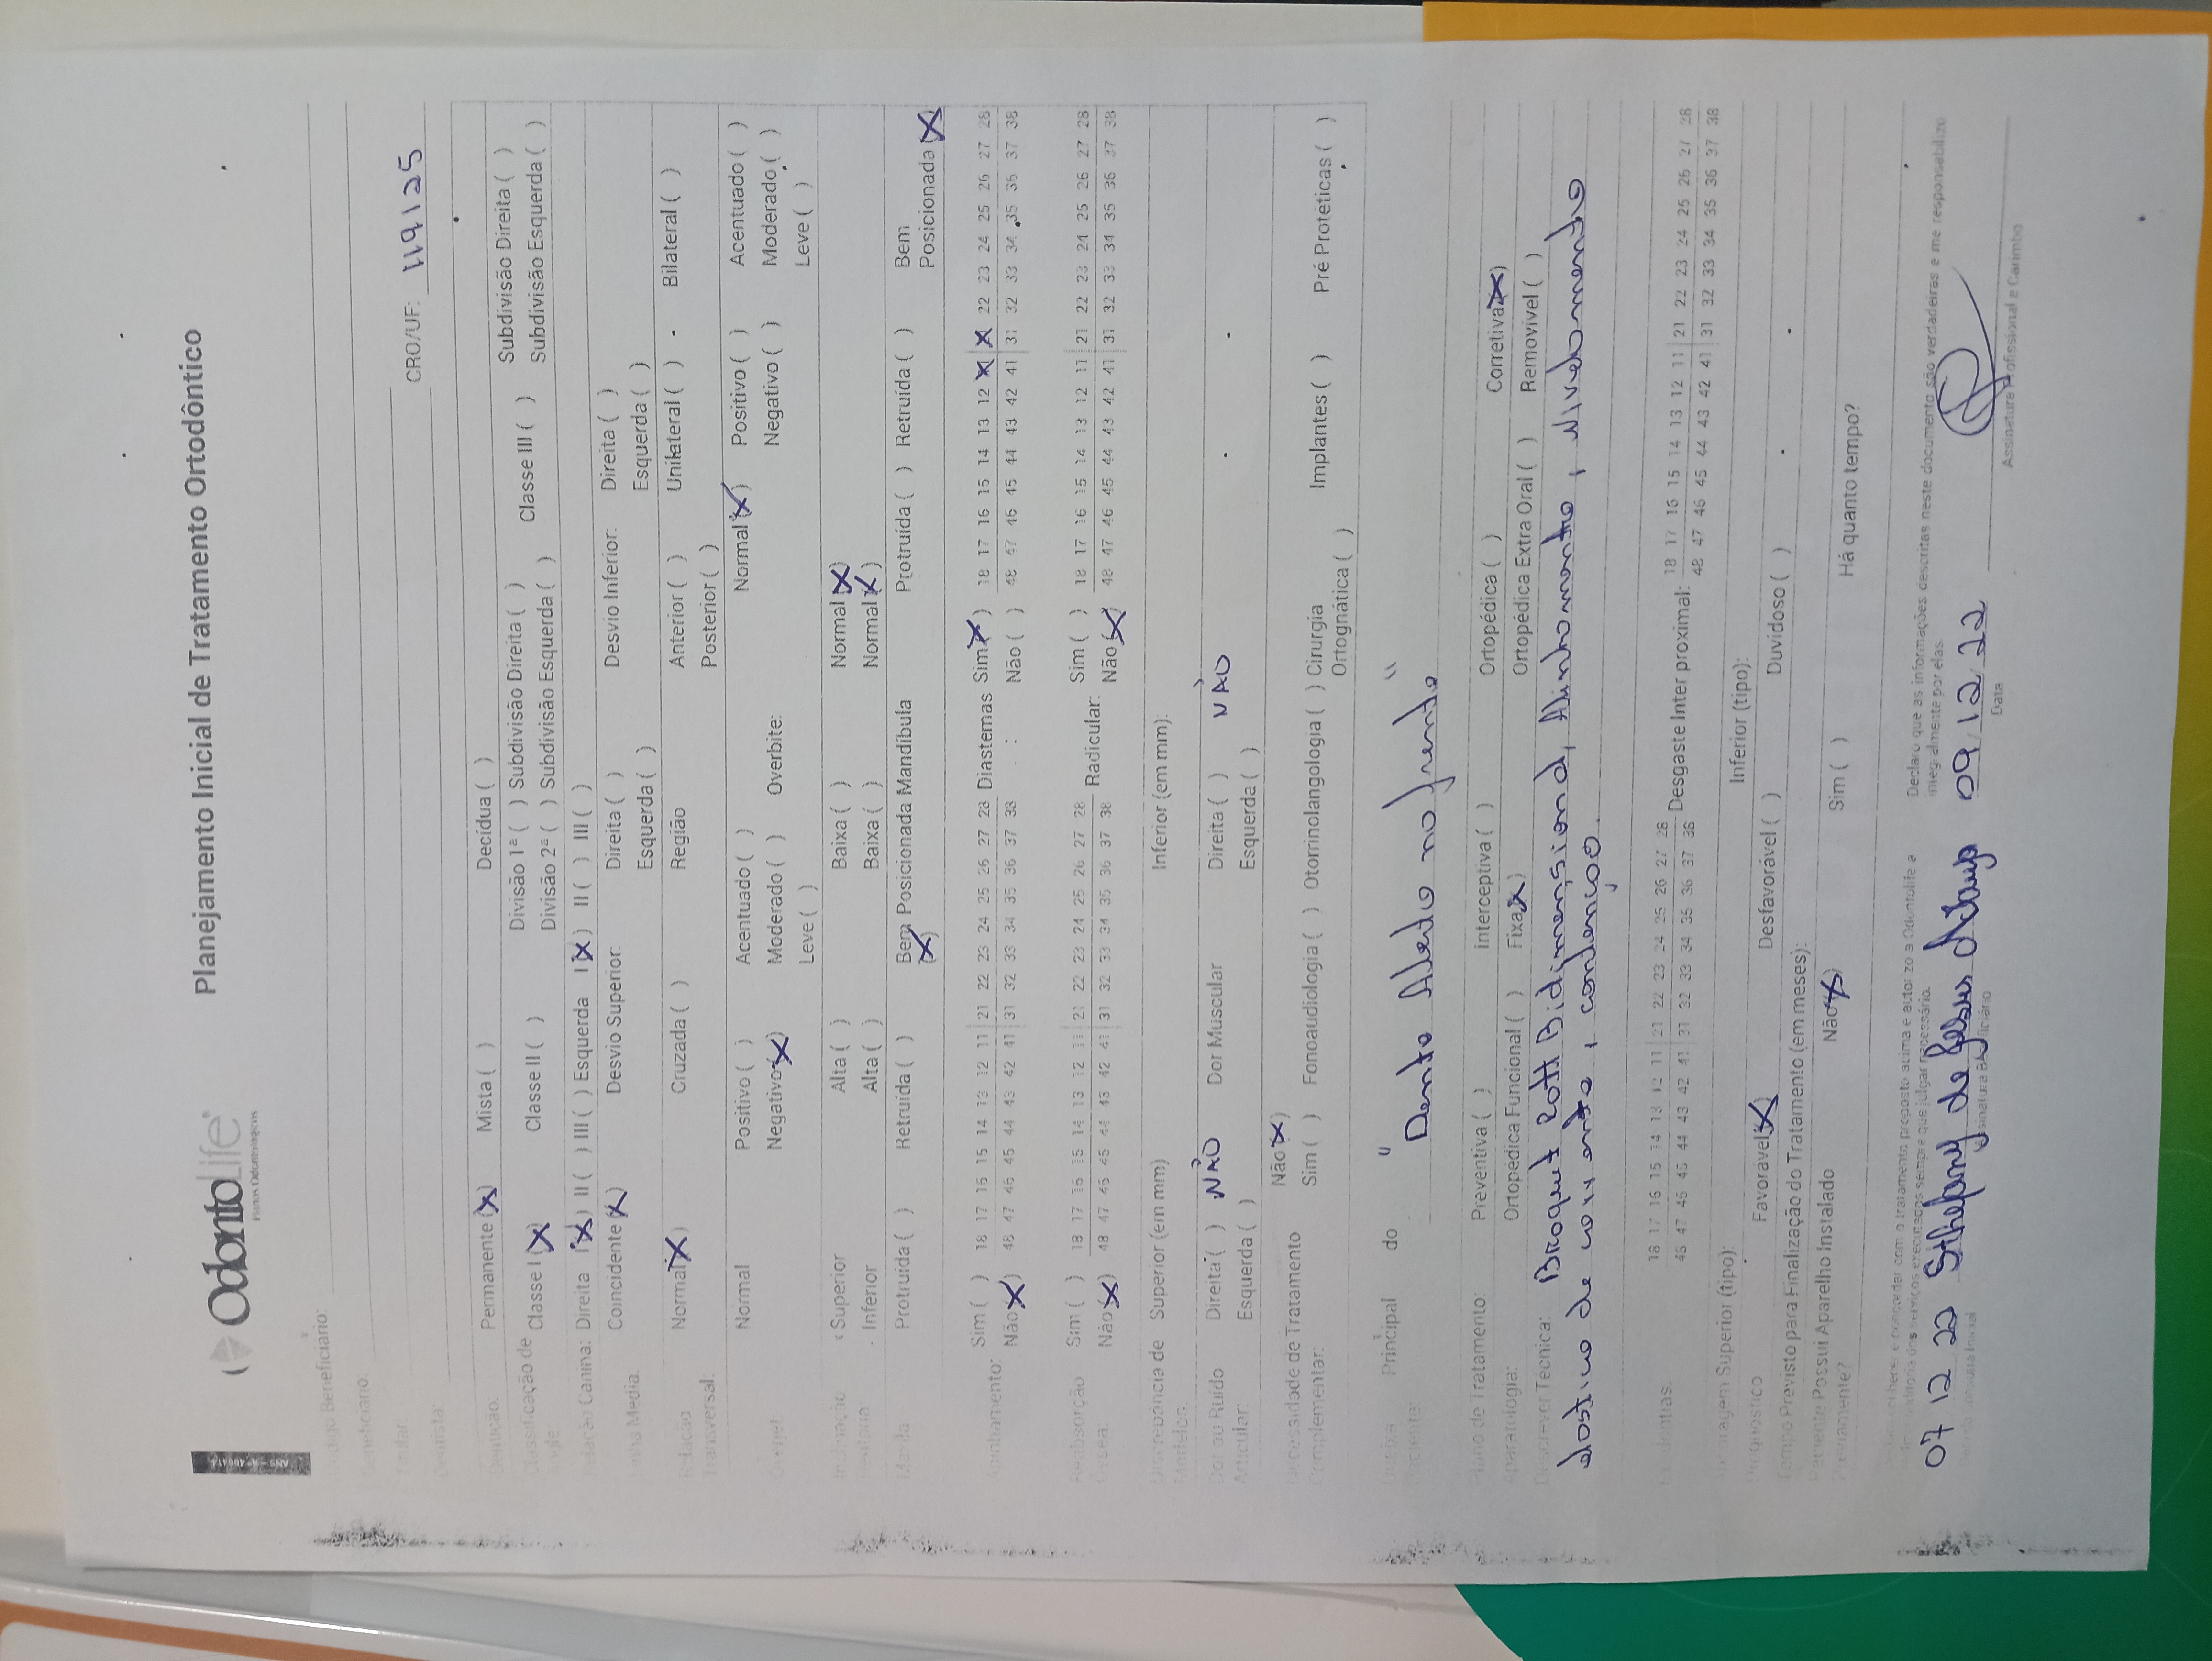 ANS - Nº 406414
OdontoLife
Planos Odontológicos
Planejamento Inicial de Tratamento Ortodôntico
Código Beneficiário:
Beneficiário:
Titular
Dentista: CRO/UF: 119125
Dentição: Permanente (X) Mista ( ) Decídua ( )
Classificação de Classe I (X) Classe II ( ) Divisão 1ª ( ) Subdivisão Direita ( ) Classe III ( ) Subdivisão Direita ( )
Angle: Divisão 2ª ( ) Subdivisão Esquerda ( ) Subdivisão Esquerda ( )
Relação Canina: Direita I (X) II ( ) III ( ) Esquerda I (X) II ( ) III ( )
Linha Média Coincidente (X) Desvio Superior: Direita ( ) Desvio Inferior: Direita ( )
Esquerda ( ) Esquerda ( )
Relação Normal (X) Cruzada ( ) Região Anterior ( ) Unilateral ( ) Bilateral ( )
Transversal: Posterior ( )
Overjet Normal Positivo ( ) Acentuado ( ) Overbite: Normal (X) Positivo ( ) Acentuado ( )
Negativo (X) Moderado ( ) Negativo ( ) Moderado ( )
Leve ( ) Leve ( )
Inclinação Superior Alta ( ) Baixa ( ) Normal (X)
Inferior Alta ( ) Baixa ( ) Normal (X)
Maxila Protruída ( ) Retruída ( ) Bem Posicionada (X) Mandíbula Protruída ( ) Retruída ( ) Bem
Posicionada (X)
Apinhamento: Sim ( ) 18 17 16 15 14 13 12 11 21 22 23 24 25 26 27 28 Diastemas Sim (X) 18 17 16 15 14 13 12 X X 22 23 24 25 26 27 28
Não (X) 48 47 46 45 44 43 42 41 31 32 33 34 35 36 37 38 Não ( ) 48 47 46 45 44 43 42 41 31 32 33 34 35 36 37 38
Reabsorção Sim ( ) 18 17 16 15 14 13 12 11 21 22 23 24 25 26 27 28 Radicular: Sim ( ) 18 17 16 15 14 13 12 11 21 22 23 24 25 26 27 28
Óssea: Não (X) 48 47 46 45 44 43 42 41 31 32 33 34 35 36 37 38 Não (X) 48 47 46 45 44 43 42 41 31 32 33 34 35 36 37 38
Discrepância de Superior (em mm) Inferior (em mm):
Modelos:
Dor ou Ruído Direita ( ) NÃO Dor Muscular Direita ( ) NÃO
Articular: Esquerda ( ) Esquerda ( )
Necessidade de Tratamento Não (X)
Complementar: Sim ( ) Fonoaudiologia ( ) Otorrinolangologia ( ) Cirurgia Ortognática ( ) Implantes ( ) Pré Protéticas ( )
Queixa Principal do " Dente Aberto na frente "
Paciente:
Plano de Tratamento: Preventiva ( ) Interceptiva ( ) Ortopédica ( ) Corretiva (X)
Aparatologia: Ortopédica Funcional ( ) Fixa (X) Ortopédica Extra Oral ( ) Removivel ( )
Descrever Técnica: Broquet Roth Bidimensional, Alinhamento, nivelamento
elastico de corrente, contenção
18 17 16 15 14 13 12 11 21 22 23 24 25 26 27 28 Desgaste Inter proximal: 18 17 16 15 14 13 12 11 21 22 23 24 25 26 27 28
48 47 46 45 44 43 42 41 31 32 33 34 35 36 37 38 48 47 46 45 44 43 42 41 31 32 33 34 35 36 37 38
Ancoragem Superior (tipo): Inferior (tipo):
Prognóstico Favorável (X) Desfavorável ( ) Duvidoso ( )
Tempo Previsto para Finalização do Tratamento (em meses):
Paciente Possui Aparelho Instalado Não (X) Sim ( ) Há quanto tempo?
Previamente?
Declaro que as informações descritas neste documento são verdadeiras e me responsabilizo
integralmente por elas.
07 12 22 Sthefany de Jesus 09/12/22
Assinatura Beneficiário Data Assinatura Profissional e Carimbo